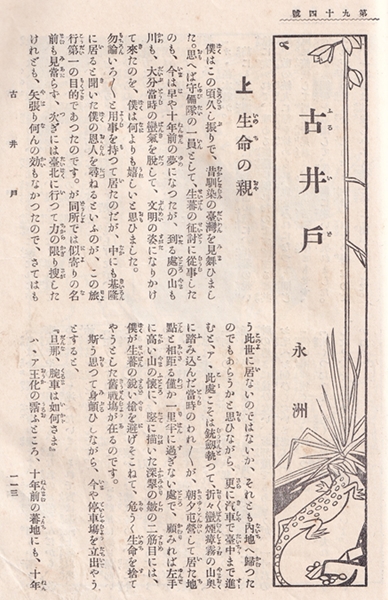 第九十四號
古井戸
永洲
上 生命の親
僕はこの頃久し振りで、昔馴染の臺灣を見舞ひまし
た。思へば守備隊の一員として、生蕃の征討に從事した
のも、今は早や十年前の夢になつたが、到る處の山も
川も、大分當時の蠻氣を脱して、文明の姿になりかけ
て來たのを、僕は何よりも嬉しいと思ひました。
勿論いろ〳〵と用事を持つて居たのだが、中にも基隆
に居ると聞いた僕の恩人を尋ねるといふのが、この旅
行の第一の目的であつたのです。が同所では似寄りの名
前も見當らず、次ぎには臺北に行つて力の限り搜した
けれども、矢張り何んの効もなかつたので、さてはも
う此世に居ないのではないか、それとも内地へ歸つた
のでもあらうかと思ひながら、更に汽車で臺中まで進
むと、ア、此處こそは銃劍執つて、折々蠻煙瘴霧の山奥
に踏み込んだ當時のわれ〳〵が、朝夕屯營して居た地
點と相距る僅か一里半に過ぎない處で、顧みれば左手
に高い山の懷に、竪に描いた深翠の皺の二筋目には、
僕が生蕃の鋭い槍を避げそこねて、危うく生命を捨て
やうとした舊戰塲が在るのです。
斯う思つて身顫ひしながら、今や停車塲を立出やう
とすると、
『旦那、腕車は如何さま』
ハ、ア王化の霑ふところ、十年前の蕃地にも、十年
古井戸
一一三